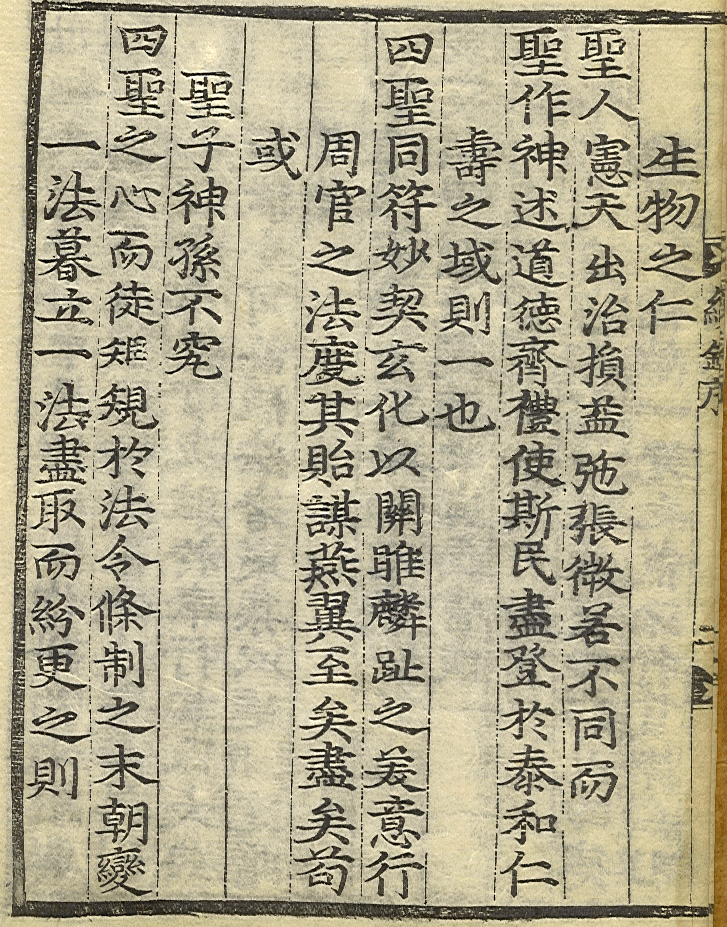 生物之仁
聖人憲天出治損益弛張微若不同而
聖作神述道德齊禮使斯民盡登於泰和仁
壽之域則一也
四聖同符妙契玄化以關雎麟趾之美意行
周官之法度其貽謀燕翼至矣盡矣苟
或
聖子神孫不究
四聖之心而徒矩規於法令條制之末朝變
一法暮立一法盡取而紛更之則